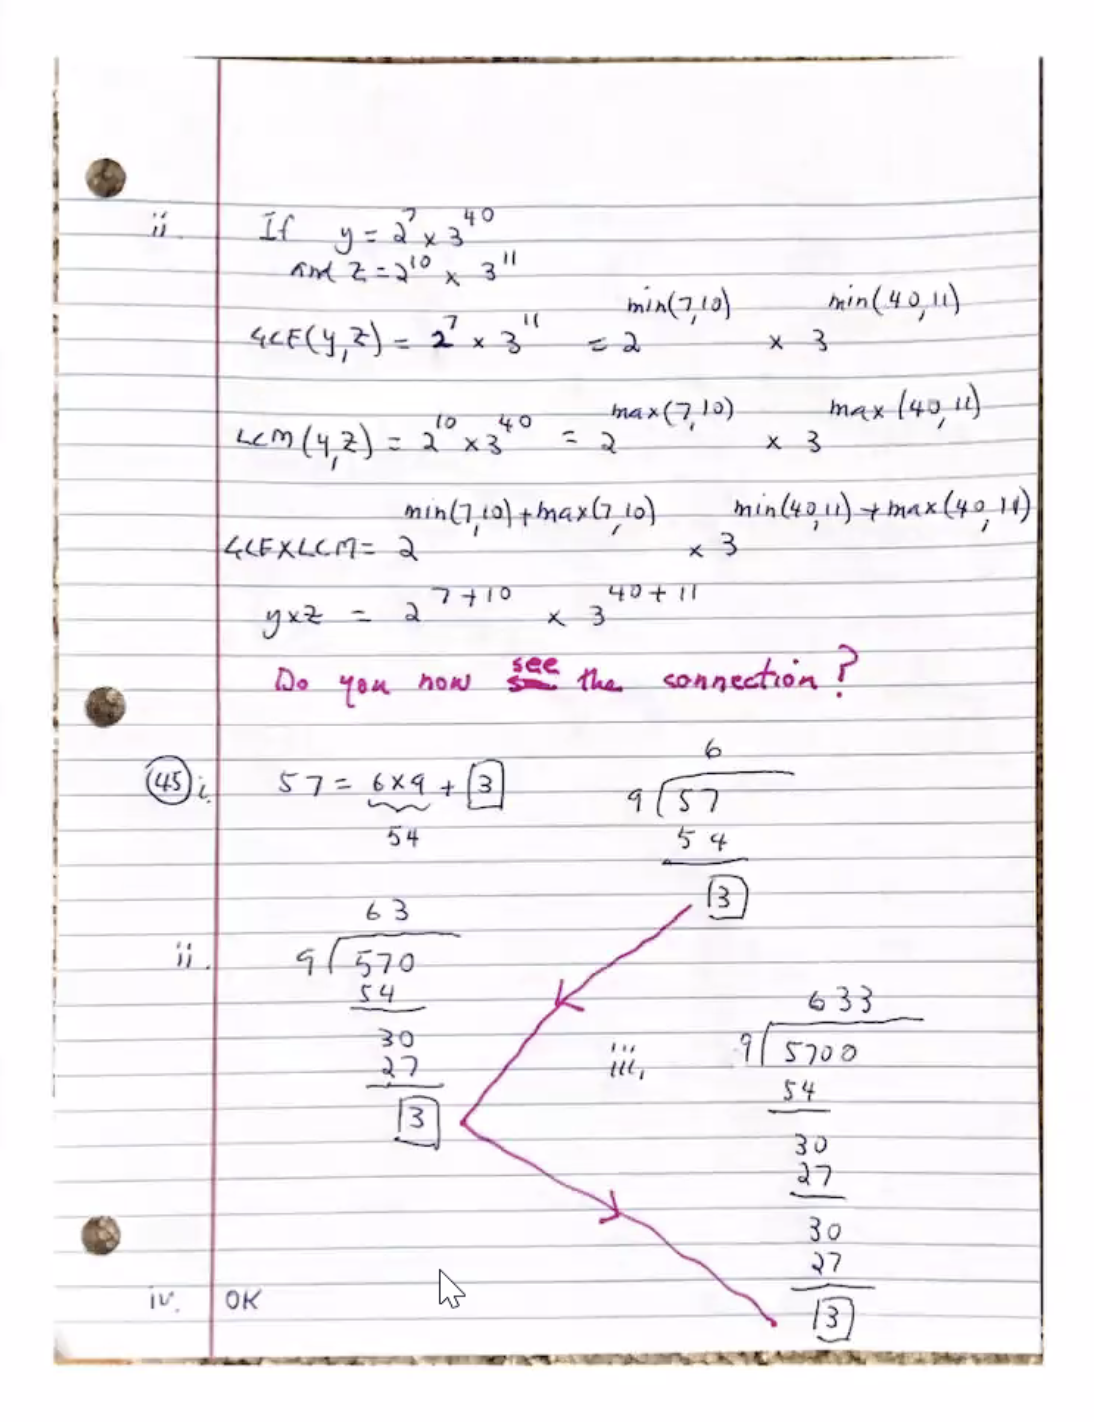 ii. If y = 2^7 x 3^40
and z = 2^10 x 3^11
GCF(y,z) = 2^7 x 3^11 = 2^min(7,10) x 3^min(40,11)
LCM(y,z) = 2^10 x 3^40 = 2^max(7,10) x 3^max(40,11)
GCFXLCM = 2^min(7,10)+max(7,10) x 3^min(40,11)+max(40,11)
yxz = 2^7+10 x 3^40+11
Do you now see the connection?
45 i. 57 = 6x9 + 3
54
6
9 57
54
3
ii. 63
9 570
54
30
27
3
iii. 633
9 5700
54
30
27
30
27
3
iv. OK